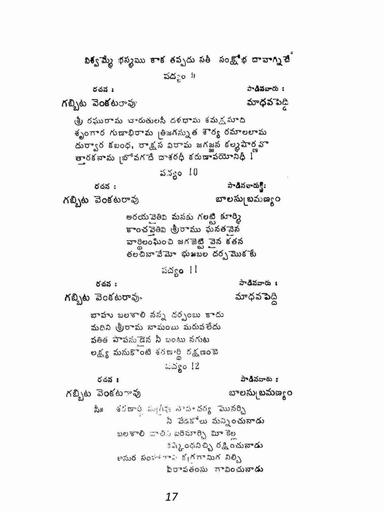 విశ్వమ్మే భస్మము కాక తప్పదు సతీ సంక్షోభ దావాగ్నితో
పద్యం 9
రచన : పాడినవారు :
గబ్బిట వెంకటరావు మాధవపెద్ది
శ్రీ రఘురామ చారుతులసీ దళదామ శమక్షమాది
శృంగార గుణాభిరామ త్రిజగన్నుత శౌర్య రమాలలామ
దుర్వార కబంధ రాక్షస విరామ జగజ్జన కల్మషార్ణవో
త్తారకనామ బ్రోవగదే దాశరథీ కరుణాపయోనిధీ !
పద్యం 10
రచన : పాడినవారు :
గబ్బిట వెంకటరావు బాలసుబ్రమణ్యం
అరయవైతివి మనకు గలట్టి కూర్మి
కాంచవైతివి శ్రీరాము ఘనతవైన
వార్థిలంఘించి జగజెట్టి వైన కతన
తలచినావేమో భుజబల దర్పమొకటె
పద్యం 11
రచన : పాడినవారు :
గబ్బిట వెంకటరావు మాధవపెద్ది
బాహు బలశాలి నన్న దర్పంబు కాదు
మదిని శ్రీరామ నామంబు మరువలేదు
పతిత పావనుడైన నీ బంటు నగుట
లక్ష్య మనుకొంటి శరణార్థి రక్షణంబె
పద్యం 12
రచన : పాడినవారు :
గబ్బిట వెంకటరావు బాలసుబ్రమణ్యం
సీ॥ శరణార్థి సుగ్రీవు మొనర్చి
నీ వేడికోలు మన్నించునాడు
బలశాలి వాలిని పరిమార్చి
కిష్కింధనిచ్చి రక్షించునాడు
అసుర నిల్చి
వీరావతంసు గావించునాడు
17